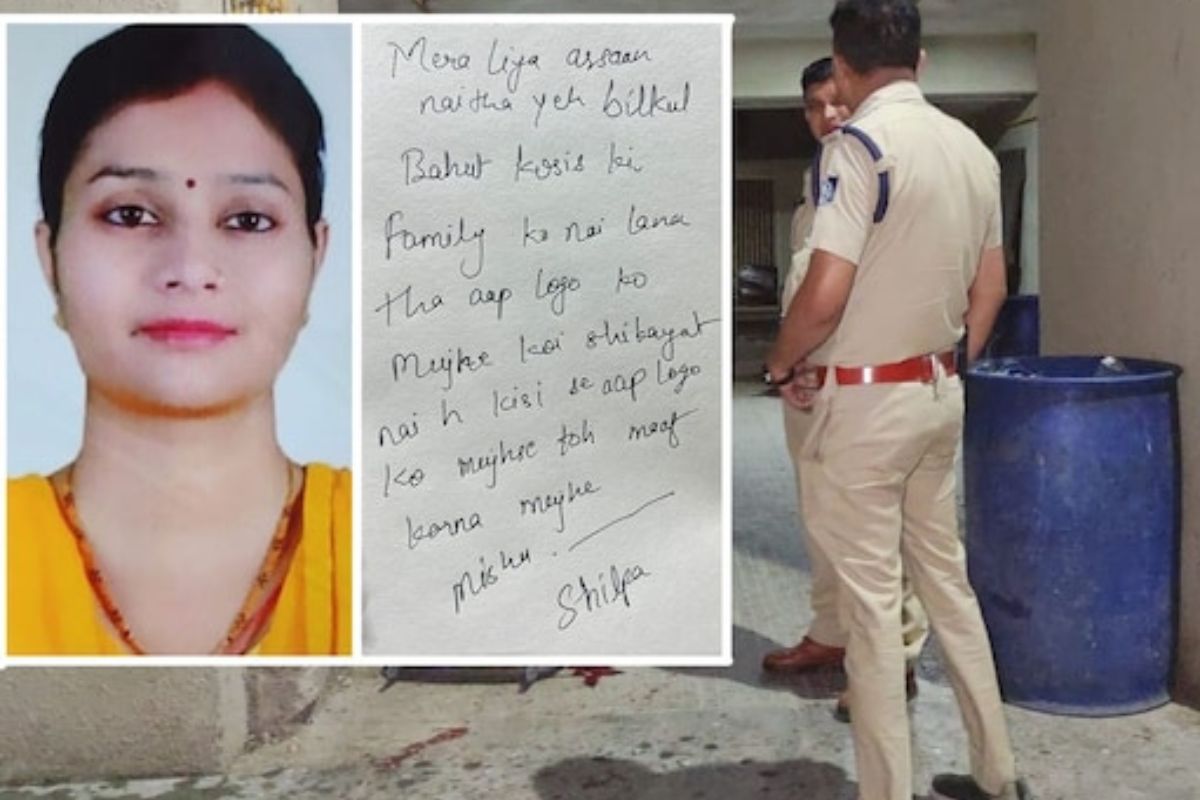 Mera liya assaan
naitha yeh bilkul
Bahut kosis ki
family ko nai lana
tha aap logo ko
mujhe koi shikayat
nai h kisi se aap logo
ko mujhse toh maaf
karna mujhe
Mishu.
Shilpa